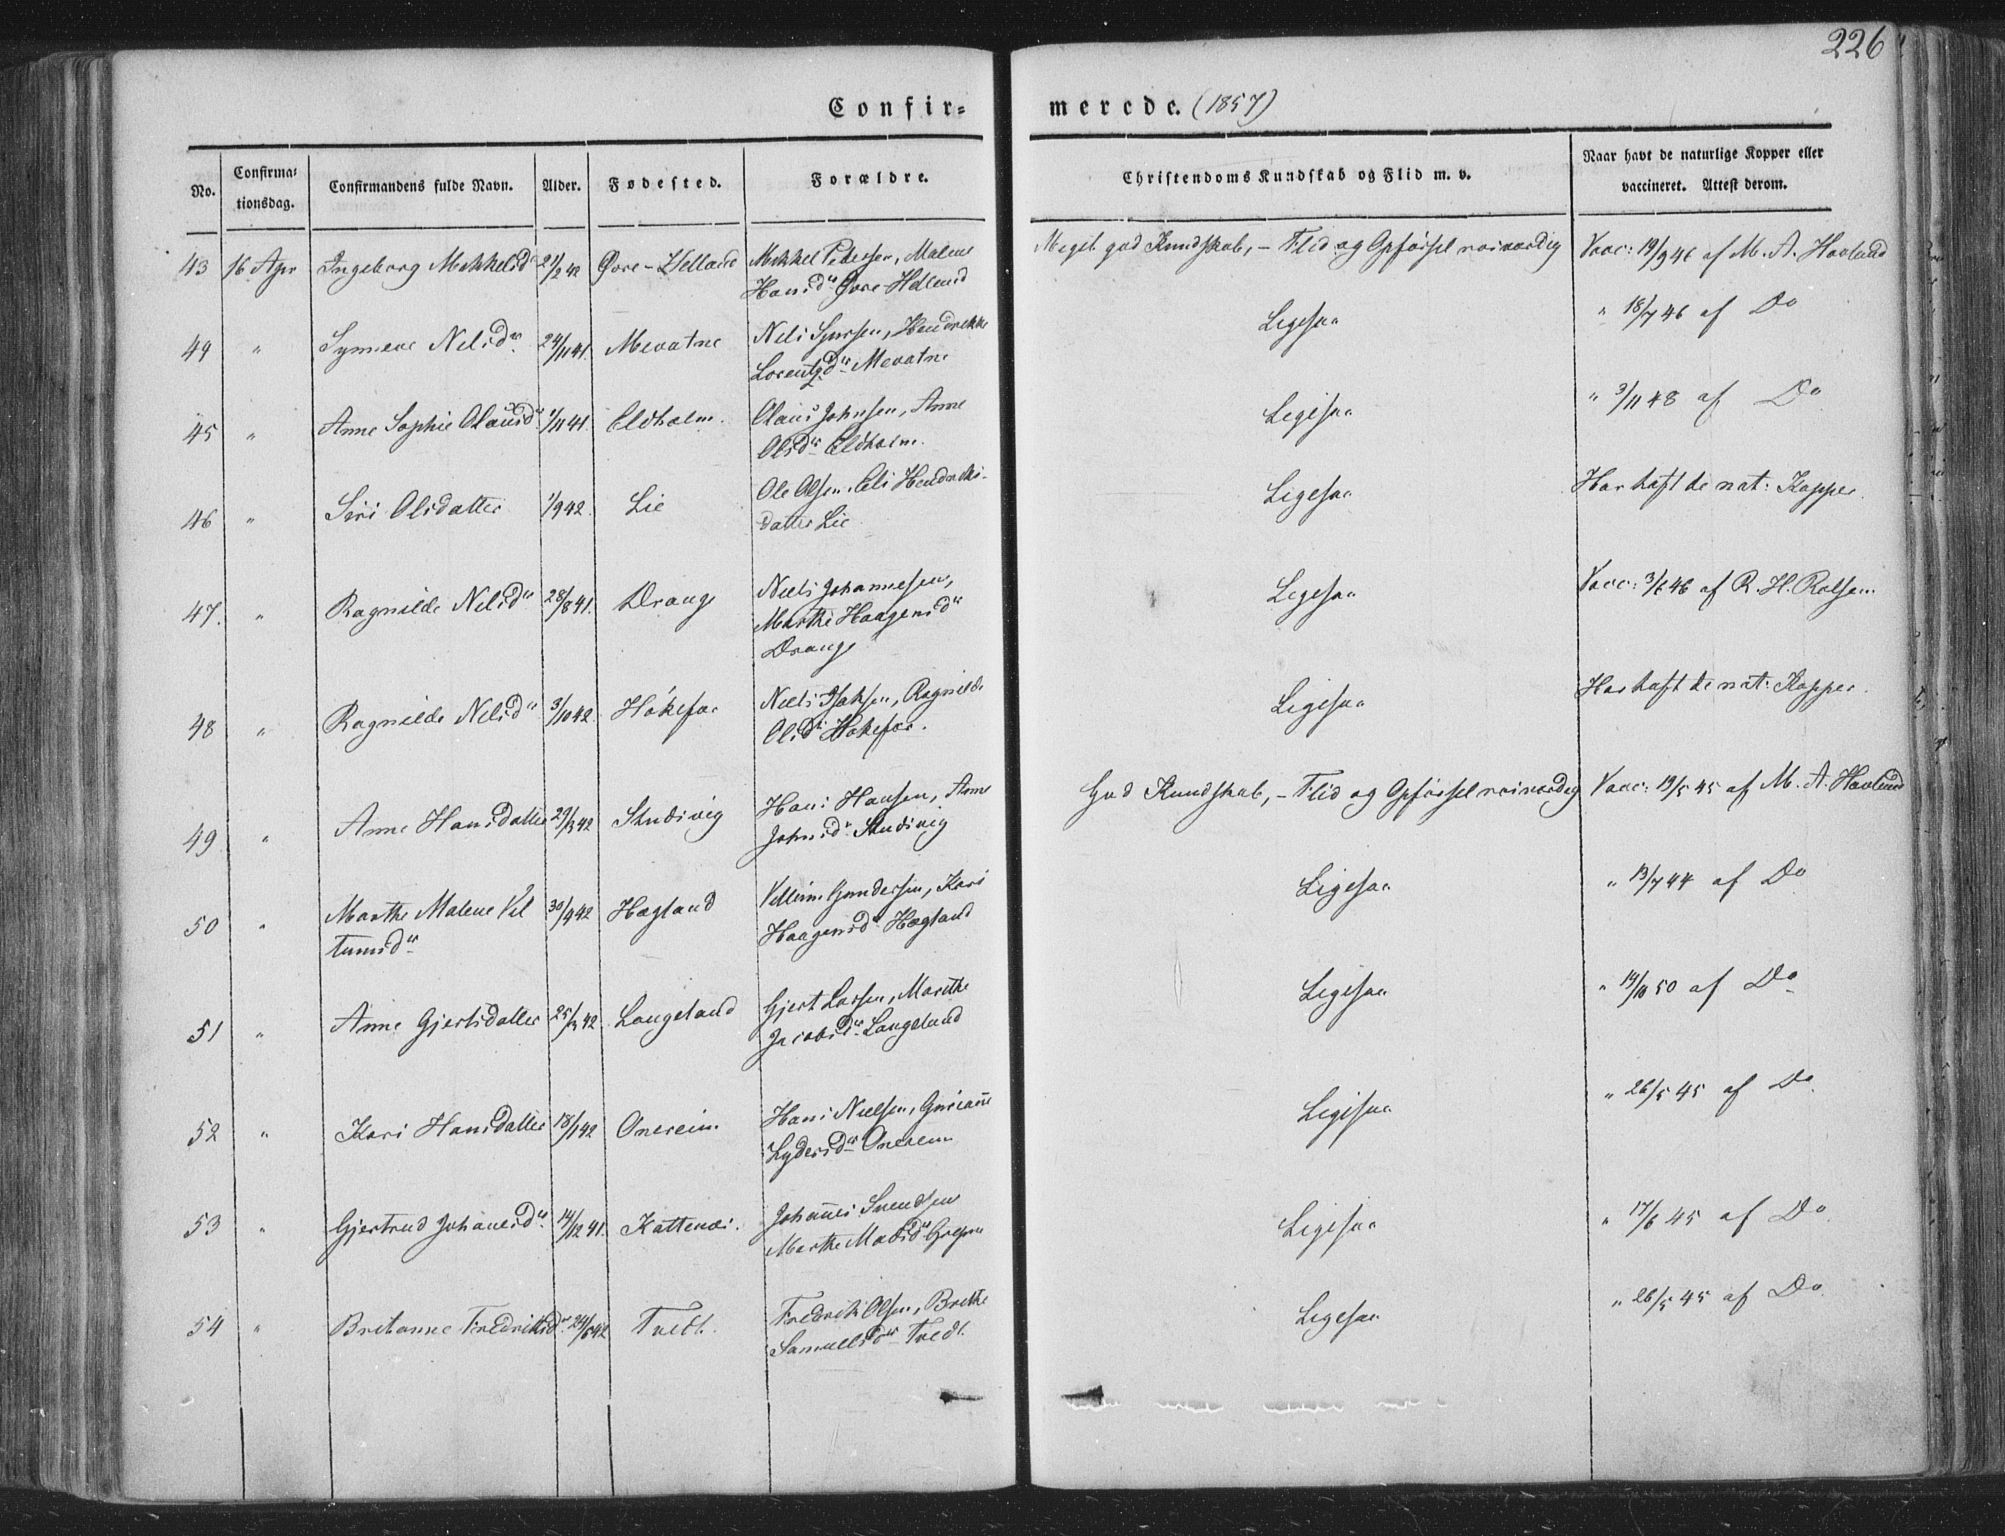 226
Confir= merede. (1857)
No. Confirma-tionsdag. Confirmandens fulde Navn. Alder. Fødested. Forældre. Christendoms Kundskab og Flid m. v. Naar havt de naturlige Kopper eller vaccineret. Attest derom.
43 16 Apr Ingeborg Mikkelsdr 21/2 42 Øvre-Helland Mikkel Pedersen, Malene Meget god Kundskab, - Flid og Opførsel roesværdig Vacc: 19/9 46 af M. A. Hovland
Hansdr Øvre Helland
44 " Synneve Nilsdr 24/11 41. Mevatne Nels Hendrikke Ligesaa " 18/7 46 af Do
Lorentzdr Mevatne
45 " Anne Sophie Olausdr 1/11 41. Eldholm. Olaus Johnsen, Anne Ligesaa " 3/11 48 af Do
Olsdr Eldholm.
46 " Siri Olsdatter 1/9 42. Lie Ole Olsen, Eli Hendriks- Ligesaa Har haft de nat: Kopper.
datter Lie
47. " Ragnilde Nilsdr 28/8 41. Drange Niels Johannesen, Ligesaa Vacc: 3/6 46 af R. H. Rolfsen
Marthe Haagensdr
Drange
48 " Ragnilde Nilsdr 3/10 42. Niels Ragnilde Ligesaa Har haft de nat: Kopper.
Olsdr
49 " Anne Hansdatter 29/3 42 Studivig Hans Hansen, Anne God Kundskab, - Flid og Opførsel roesværdig Vacc: 19/5 45 af M. A. Hovland
Johnsdr Studivig
50 " Marthe Malene Vil 30/9 42 Hægland Gundersen, Kari Ligesaa " 13/7 44 af Do
lumsdr Haagensdr Hægland
51 " Anne Gjertsdatter 25/3 42. Langeland Gjert Larsen, Marthe Ligesaa " 14/10 50 af Do
Jacobsdr Langeland
52 " Kari Hansdatter 18/1 42 Onereim Hans Nielsen, Ligesaa " 26/5 45 af Do
Lydersdr Onereim
53 " Gjertrud Johanesdr 14/12 41. Kattenæs. Johannes Svendsen Ligesaa " 17/6 45 af Do
Marthe Madsdr
54 " Britanne Fredriksdr 24/6 42 Tvedt. Fredrik Olsen, Brithe Ligesaa " 26/5 45 af Do
Samuelsdr Tvedt.